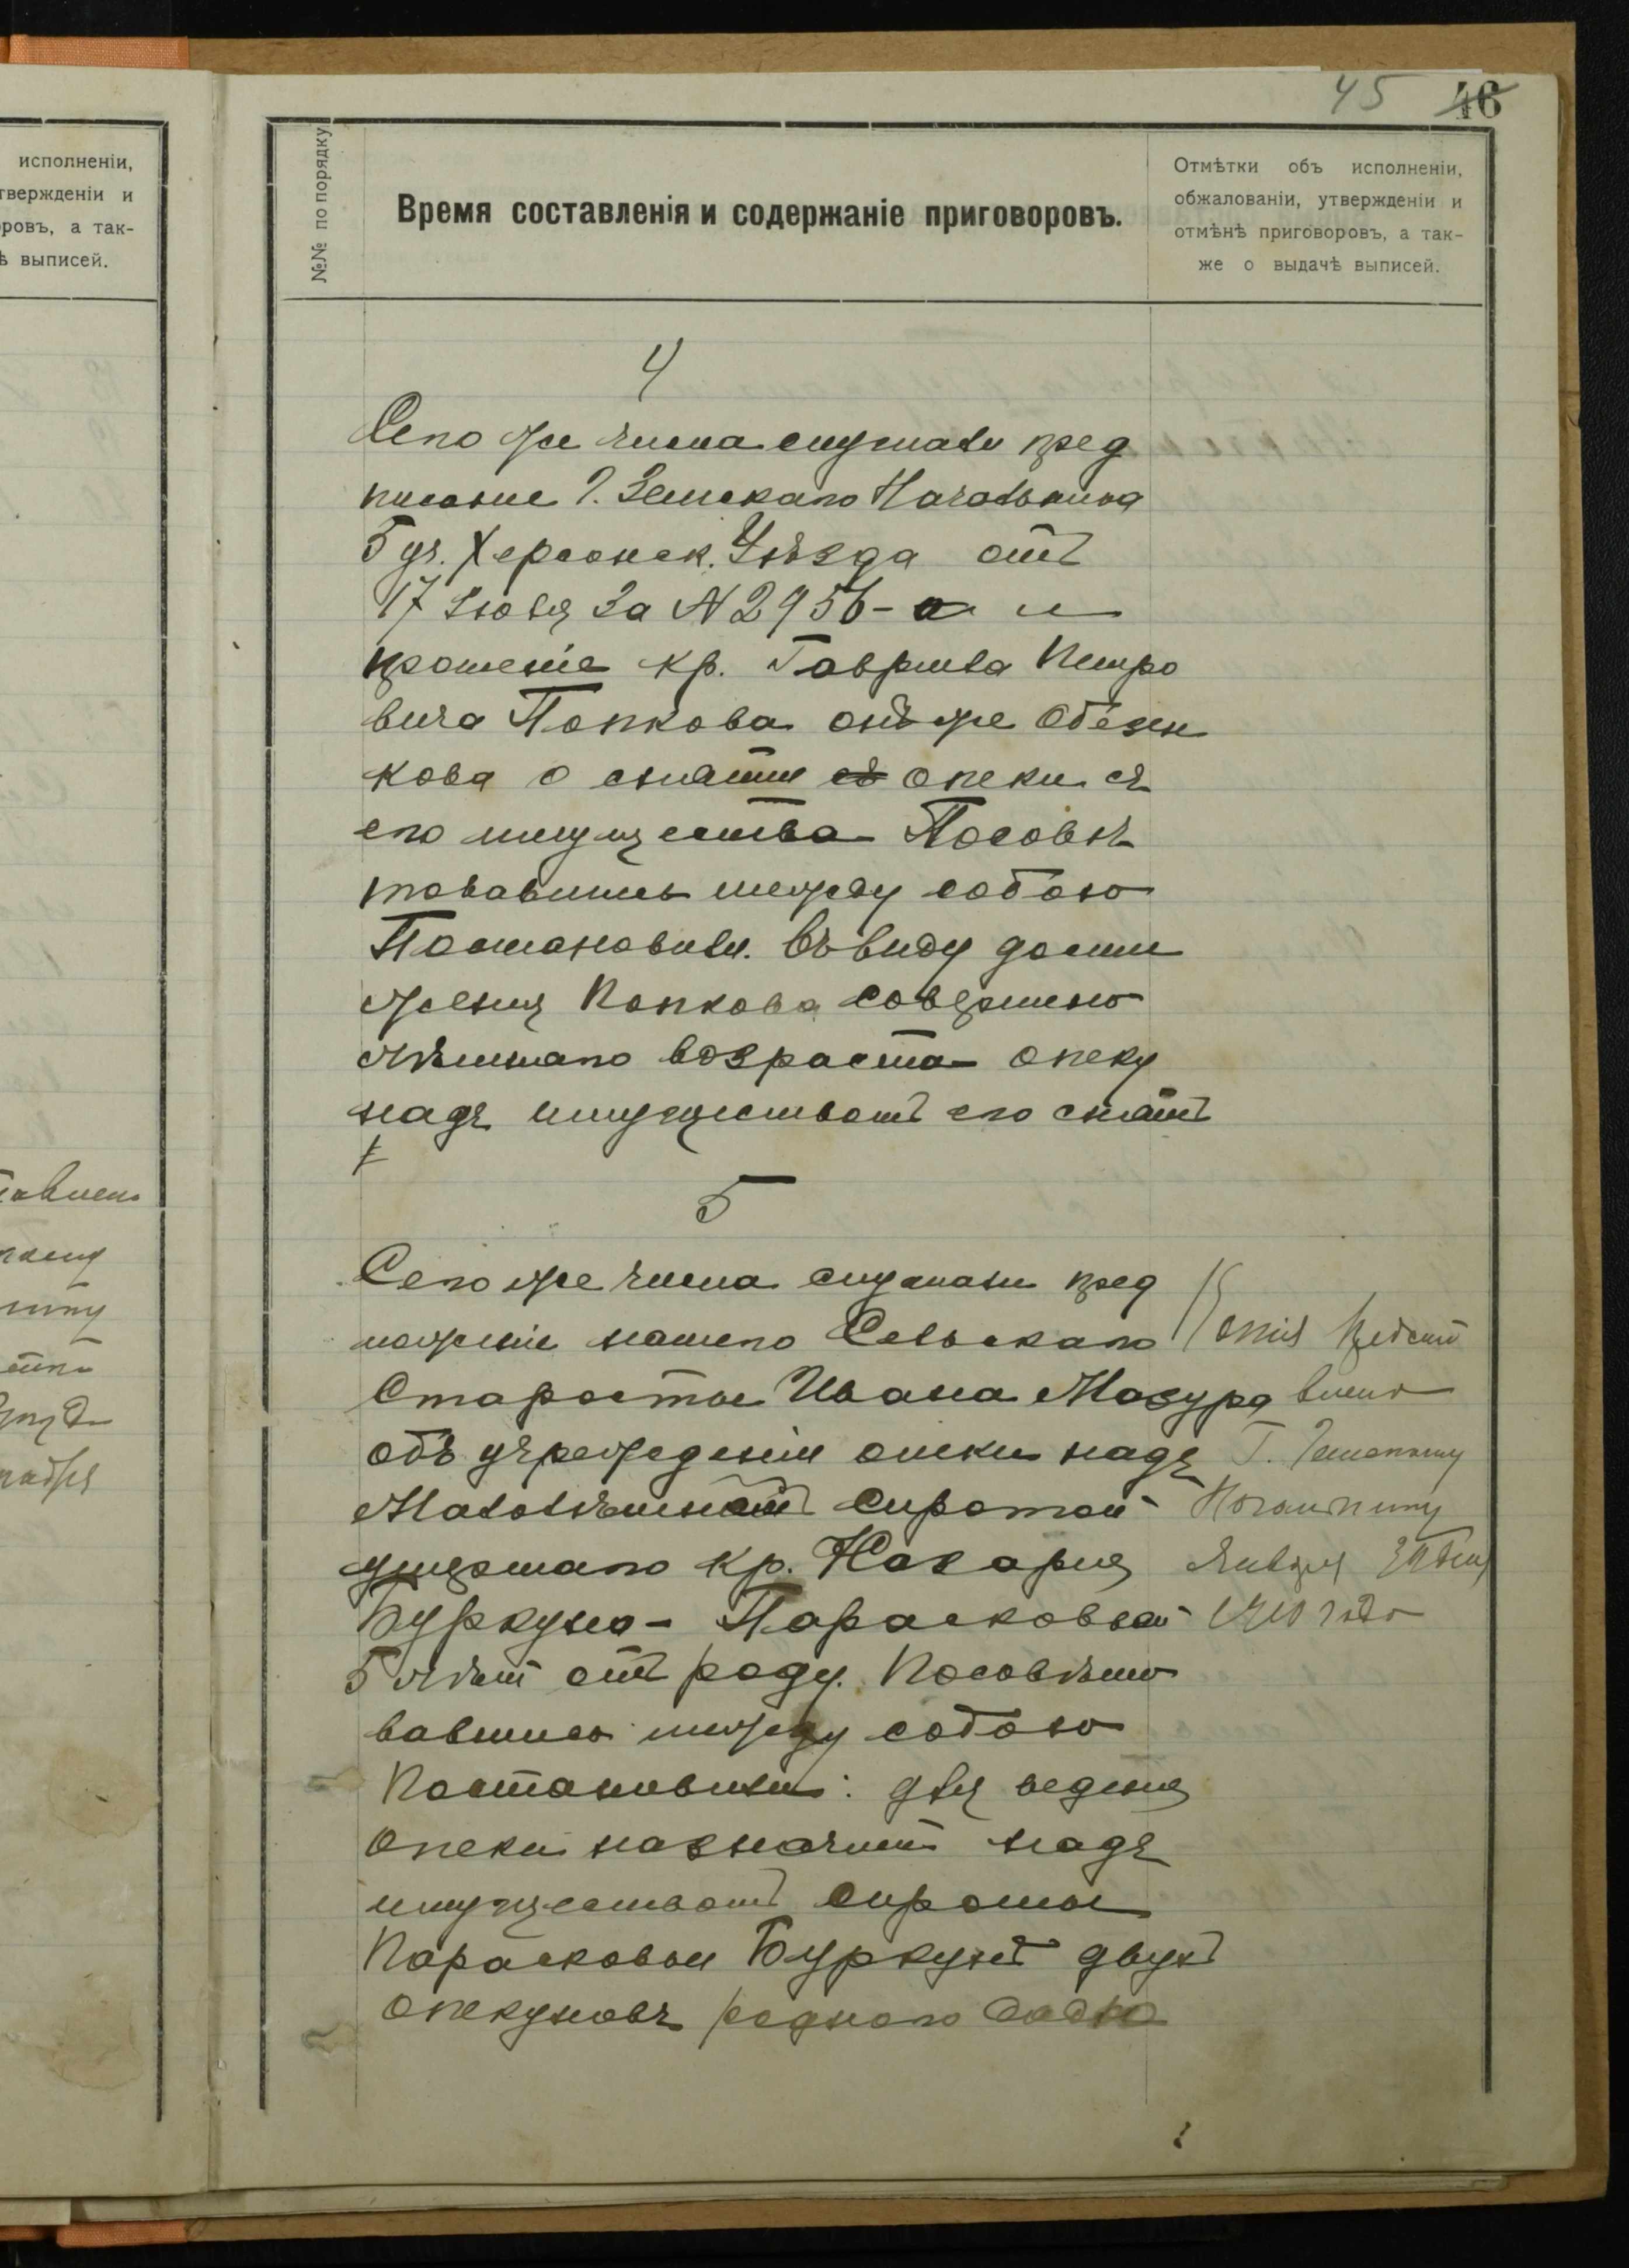 45 46
исполненіи,
твержденіи и
оровъ, а так-
ѣ выписей.
№№ по порядку
Время составленія и содержаніе приговоровъ.
Отмѣтки объ исполненіи,
обжалованіи, утвержденіи и
отмѣнѣ приговоровъ, а так-
же о выдачѣ выписей.
4
Сего же числа слушали пред
писание Г. Земскаго Начальника
5 уч. Херсонск. Уѣзда отъ
17 Іюля За № 2956 - и
прошеніе кр. Гаврила Петро
вича Попкова онъ же
кова о снятии опеки съ
его имущества Посовѣ
товавшись между собою
Постановили. Въ виду дости
жения Попкова Совершено
лѣтнаго возраста опеку
надъ имуществомъ его снять
5
Сего же числа слушали пред
ложеніе нашего Сельскаго
Старосты Ивана Мазура
объ учреждении опеки надъ
Малолѣтной Сиротой
умершаго кр. Назария
Буркуна - Парасковьей
5 лѣтъ отъ роду. Посовѣто
вавшись между собою
Постановили: для ведения
Опеки назначить надъ
имуществомъ Сироты
Парасковьи Буркунъ двухъ
Опекуновъ родного дядю
Копія Предста
влена
Г. Земскому
Начальнику
Января
1910 года